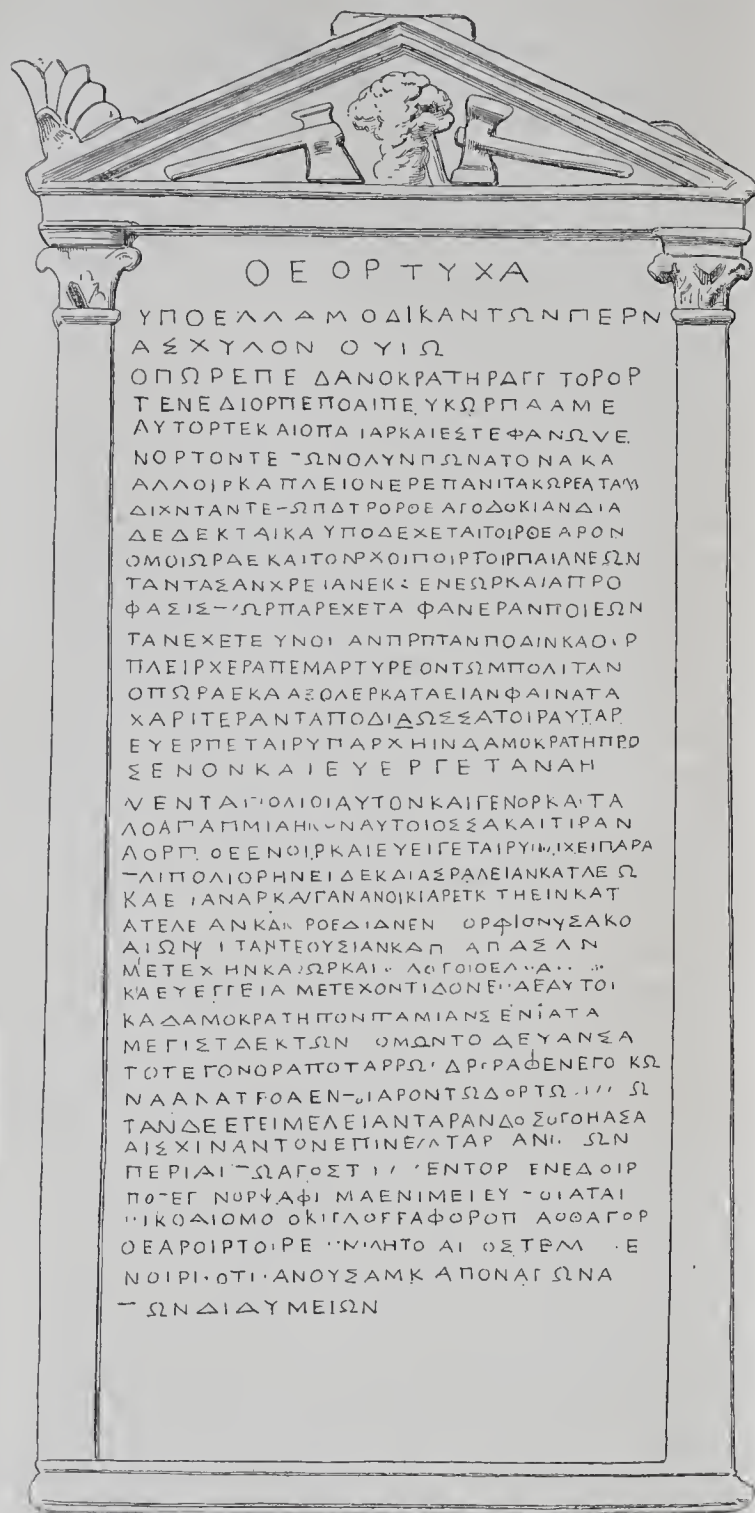 ΟΕΟΡΤΥΧΑ
ΥΠΟΕΛΛΑΜΟΔΙΚΑΝΤΩΝΠΕΡΝ
ΑΣΧΥΛΟΝ ΟΥΙΩ
ΟΠΩΡΕΠΕ ΔΑΝΟΚΡΑΤΗΡΑΓΓ ΤΟΡΟΡ
ΤΕΝΕΔΙΟΡΠΕΠΟΑΙΠΕ ΥΚΩΡΠΑΑΜΕ
ΛΥΤΟΡΤΕΚΑΙΟΠΑ ΙΑΡΚΑΙΕΣΤΕΦΑΝΩVΕ
ΝΟΡΤΟΝΤΕ ΩΝΟΛΥΝΠΩΝΑΤΟΝΑΚΑ
ΑΛΛΟΙΡΚΑΠΛΕΙΟΝΕΡΕΠΑΝΙΤΑΚΩΡΕΑΤΑΝ
ΔΙΧΝΤΑΝΤΕ-ΩΠΔΤΡΟΡΘΕΑΓΟΔΟΚΙΑΝΔΙΑ
ΔΕΔΕΚΤΑΙΚΑΥΠΟΔΕΧΕΤΑΙΤΟΙΡΘΕΑΡΟΝ
ΟΜΟΙΩΡΑΕΚΑΙΤΟΝΡΧΟΙΠΟΙΡΤΟΙΡΠΑΙΑΝΕΩΝ
ΤΑΝΤΑΣΑΝΧΡΕΙΑΝΕΚ ΕΝΕΩΡΚΑΙΑΠΡΟ
ΦΑΣΙΣ ΩΡΠΑΡΕΧΕΤΑ ΦΑΝΕΡΑΝΠΟΙΕΩΝ
ΤΑΝΕΧΕΤΕ ΥΝΟΙ ΑΝΠΡΠΤΑΝΠΟΔΙΝΚΑΟΙΡ
ΠΛΕΙΡΧΕΡΑΠΕΜΑΡΤΥΡΕΟΝΤΩΜΠΟΛΙΤΑΝ
ΟΠΩΡΑΕΚΑΑΞΟΛΕΡΚΑΤΑΕΙΑΝΦΑΙΝΑΤΑ
ΧΑΡΙΤΕΡΑΝΤΑΠΟΔΙΔΩΣΣΑΤΟΙΡΑΥΤΑΡ
ΕΥΕΡΠΕΤΑΙΡΥΠΑΡΧΗΙΝΔΑΜΟΚΡΑΤΗΠΡΟ
ΣΕΝΟΝΚΑΙΕΥΕΡΓΕΤΑΝΔΗ
VΕΝΤΑ ΠΟΛΙΟΙΑΥΤΟΝΚΑΙΓΕΝΟΡΚΑΙΤΑ
ΛΟΑΠΑΠΜΙΑΗ ΝΑΥΤΟΙΟΣΣΑΚΑΙΤΙΡΑΝ
ΛΟΡΠ ΟΕΕΝΟΙΡΚΑΙΕΥΕΙΓΕΤΑΙΡΥ ΙΧΕΙΠΑΡΑ
ΛΙΠΟΛΙΟΡΗΝΕΙΔΕΚΔΙΑΣΡΑΛΕΙΑΝΚΑΤΛΕΩ
ΚΑΕ ΙΑΝΑΡΚΑΓΑΝΑΝΟΙΚΙΑΡΕΤΚ ΤΗΕΙΝΚΑΤ
ΑΤΕΛΕ ΑΝΚΑ ΡΟΕΔΙΑΝΕΝ ΟΡΦΙΟΝΥΣΑΚΟ
ΑΙΩΝ ΙΤΑΝΤΕΟΥΣΙΑΝΚΑΠ ΑΠΑΣΑΝ
ΜΕΤΕΧΗΝΚΑ ΩΡΚΑΙ ΛΟΓΟΙΟΕΛ Α
ΚΑΕΥΕΓΓΕΙΑ ΜΕΤΕΧΟΝΤΙΔΟΝΕ ΑΕΔΥΤΟΙ
ΚΑΔΑΜΟΚΡΑΤΗΠΟΝΠΤΑΜΙΑΝΣ ΕΝΙΑΤΑ
ΜΕΓΙΣΤΔΕΚΤΩΝ ΟΜΩΝΤΟΔΕΥΑΝΣΑ
ΤΟΤΕΓΟΝΟΡΑΠΟΤΑΡΡΩ ΔΡΓΡΑΦΕΝΕΓΟ ΚΩ
ΝΑΑΛΑΤΡΟΑΕΝ ΙΑΡΟΝΤΩΔΟΡΤΩ Ω
ΤΑΝΔΕΕΓΕΙΜΕΛΕΙΑΝΤΑΡΑΝΔΟΣΟΓΟΗΑΣΑ
ΑΙΣΧΙΝΑΝΤΟΝΕΠΙΝΕ ΛΤΑΡ ΑΝΙ ΩΝ
ΠΕΡΙΑΙ ΩΑΓΟΣΤ ΕΝΤΟΡ ΕΝΕΔΟΙΡ
ΠΟ-ΕΓ ΝΟΡΨΑΦΙ ΜΑΕΝΙΜΕΙΕΥ ΟΙΑΤΑΙ
ΙΚΟΔΙΟΜΟ ΟΚΙΓΛΟΓΓΑΦΟΡΟΠ ΑΟΘΑΓΟΡ
ΟΕΑΡΟΙΡΤΟΙΡΕ ΜΙΛΗΤΟ ΑΙ ΟΣΤΕΜ Ε
ΝΟΙΡΙ ΟΤΙ ΑΝΟΥΣΑΜΚ ΑΠΟΝΑΓΩΝΑ
ΩΝΔΙΔΥΜΕΙΩΝ